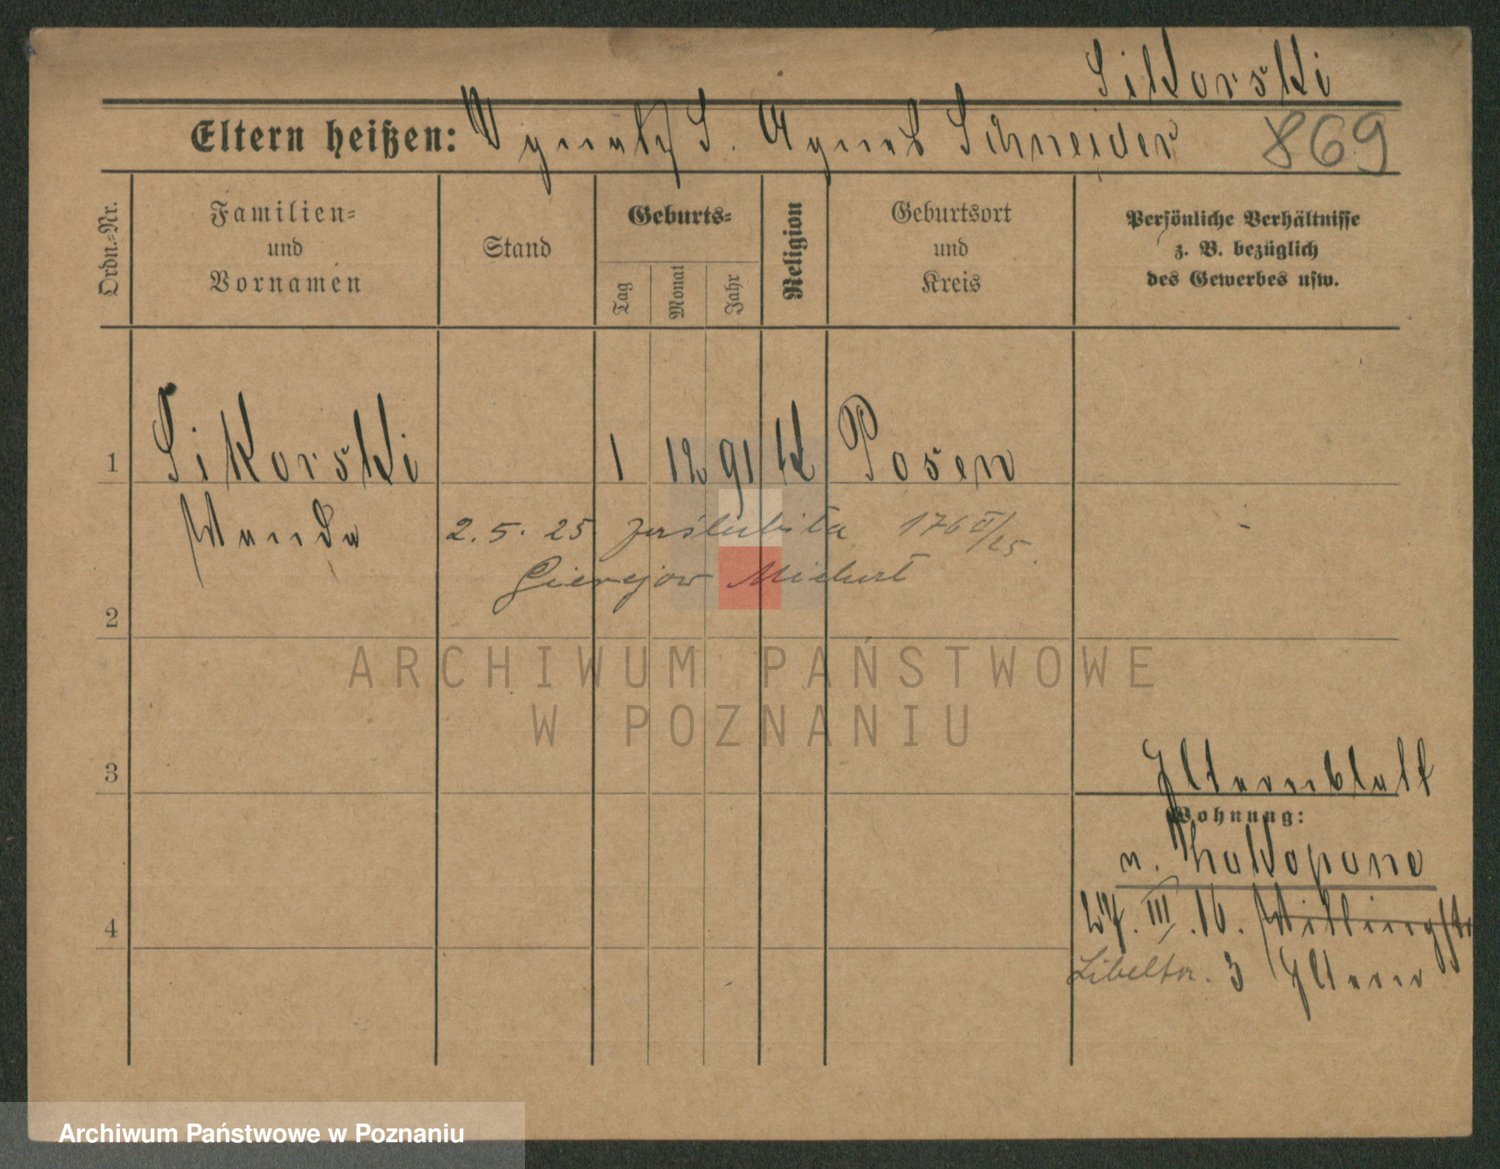 Sikorski
Eltern heißen: Ignatz S. Agnes Schneider 869
Ordn.-Nr.
Familien-
und
Vornamen
Stand
Geburts-
Tag
Monat
Jahr
Religion
Geburtsort
und
Kreis
Persönliche Verhältnisse
z. B. bezüglich
des Gewerbes usw.
1 Sikorski 1 12 91 K Posen
Wanda 2. 5. 25 zaślubiła 176
2
ARCHIWUM PAŃSTWOWE
W POZNANIU
3
Elternblatt
Wohnung:
n. Zakopane
4
27. III. 16.
3 Eltern
Archiwum Państwowe w Poznaniu